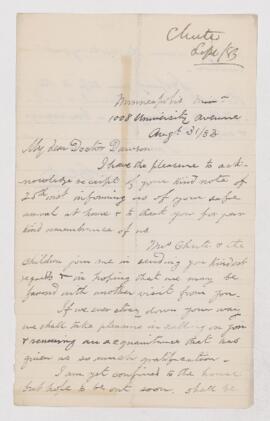 Chute
Sept /83
Minneapolis Minn
1008 University Avenue
Augt 31/83
My dear Doctor Dawson
I have the pleasure to ack-
nowledge receipt of your kind note of
25th inst informing us of your safe
arrival at home & to thank you for your
kind remembrance of us
Mrs Chute & the
children join me in sending you kindest
regards & in hoping that we may be
favored with another visit from you.
If we ever stray down your way
we shall take pleasure in calling on you
& renewing an acquaintance that has
given us so much gratification.
I am yet confined to the house
but hope to be out soon. Shall be